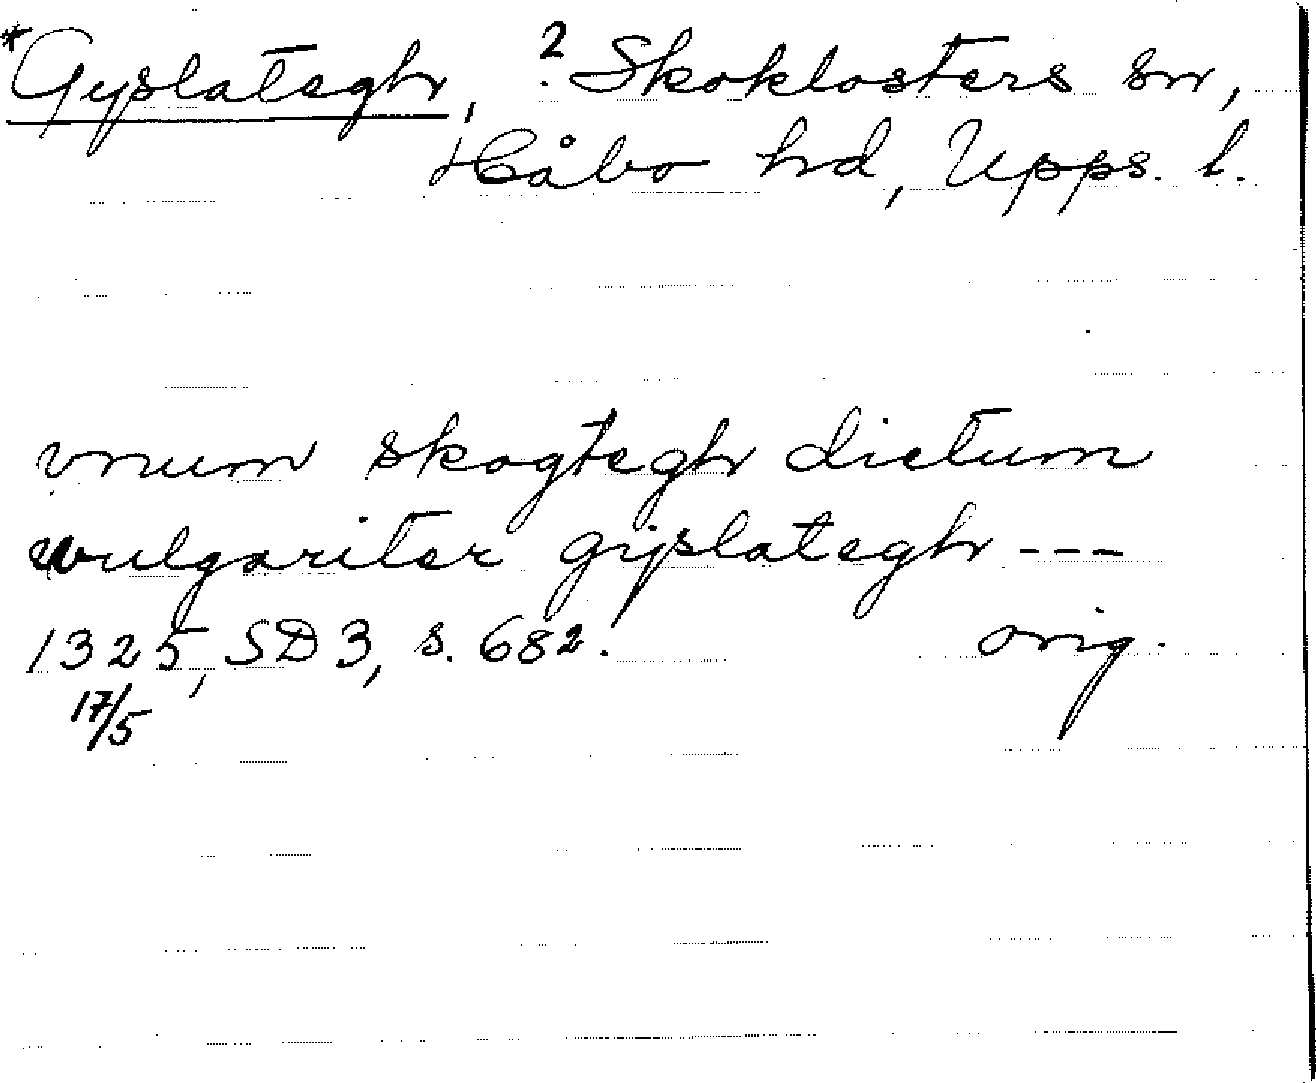 *Gyslategh, ? Skoklosters sn,
Håbo hd, Upps. l.
vnum skogtegh dictum
wulgariter gijslategh ---
1325, SD 3, s. 682. orig.
17/5